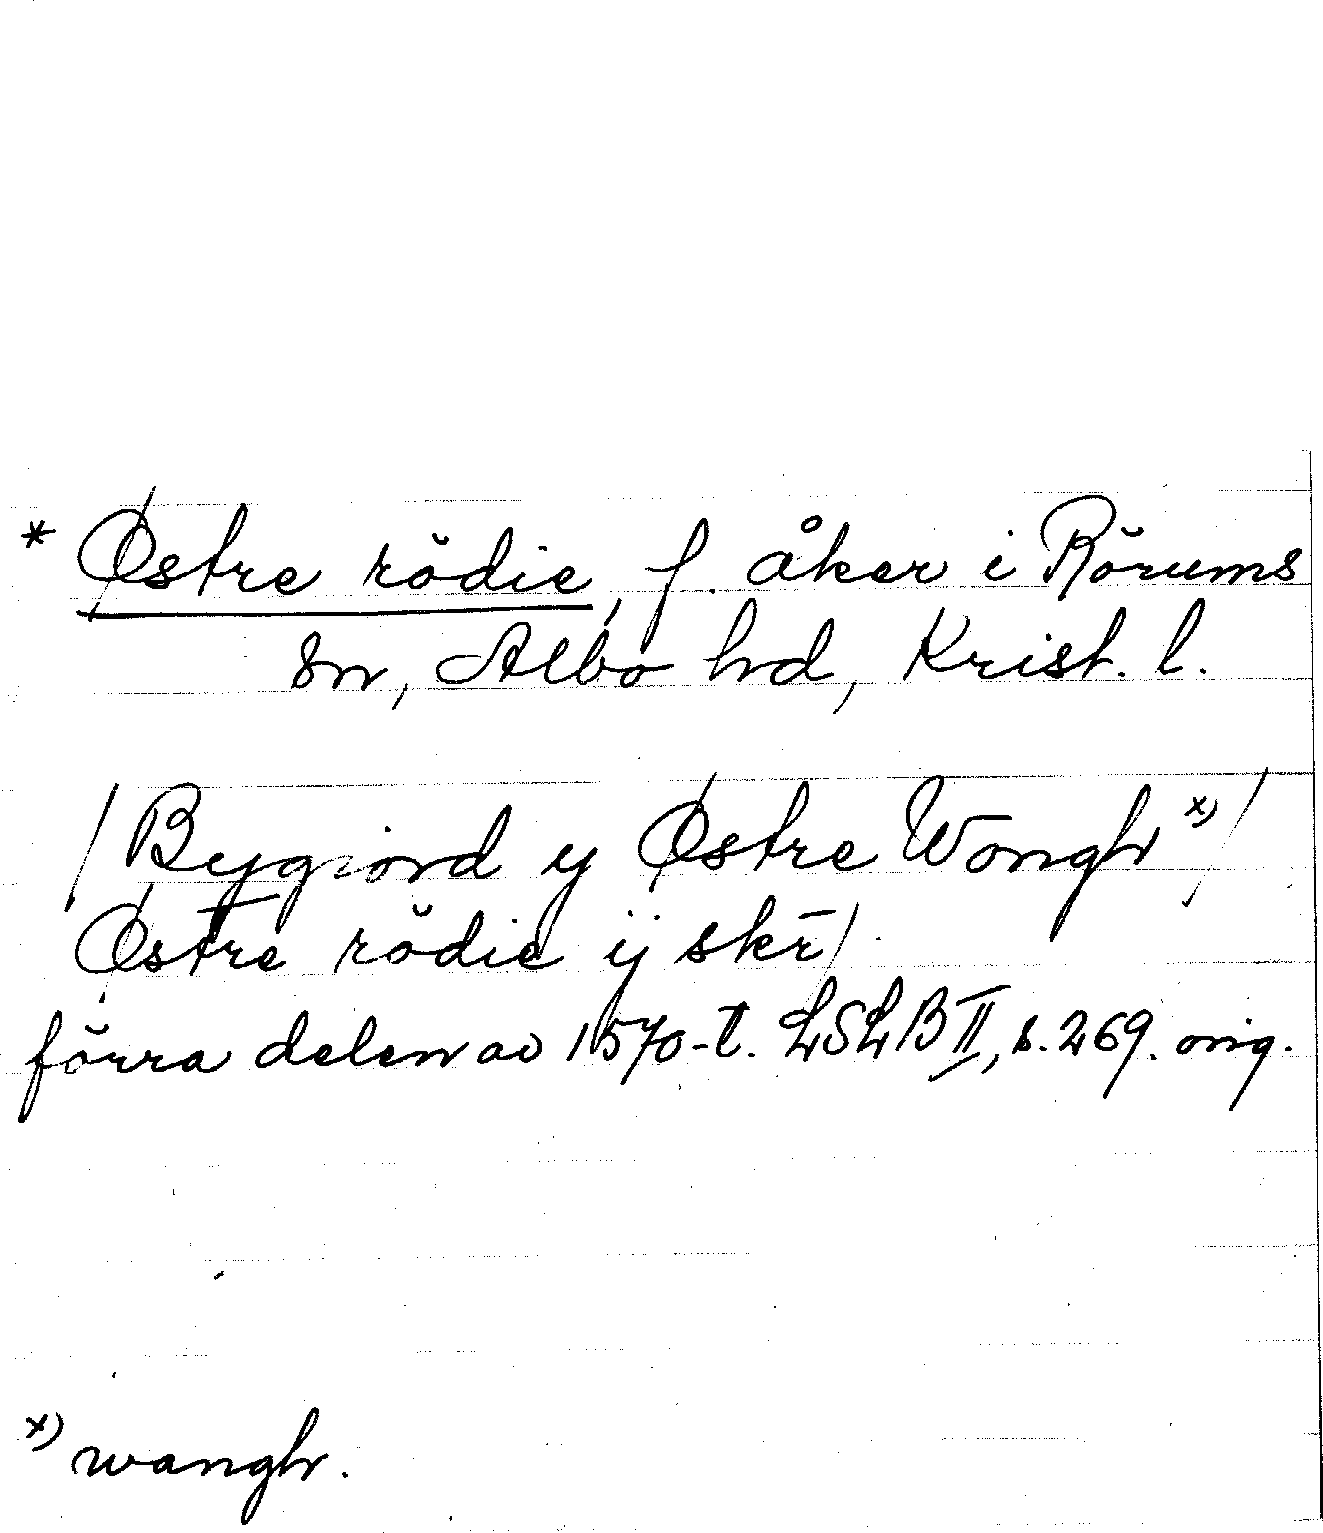 * Østre rödie, f. åker i Rörums
sn, Albo hd, Krist. l.
/Bygiord y Østre Wongh x)/
Østre rödie ij skr̄/.
förra delen av 1570-t. LSLB II, s. 269. orig.
x) wangh.